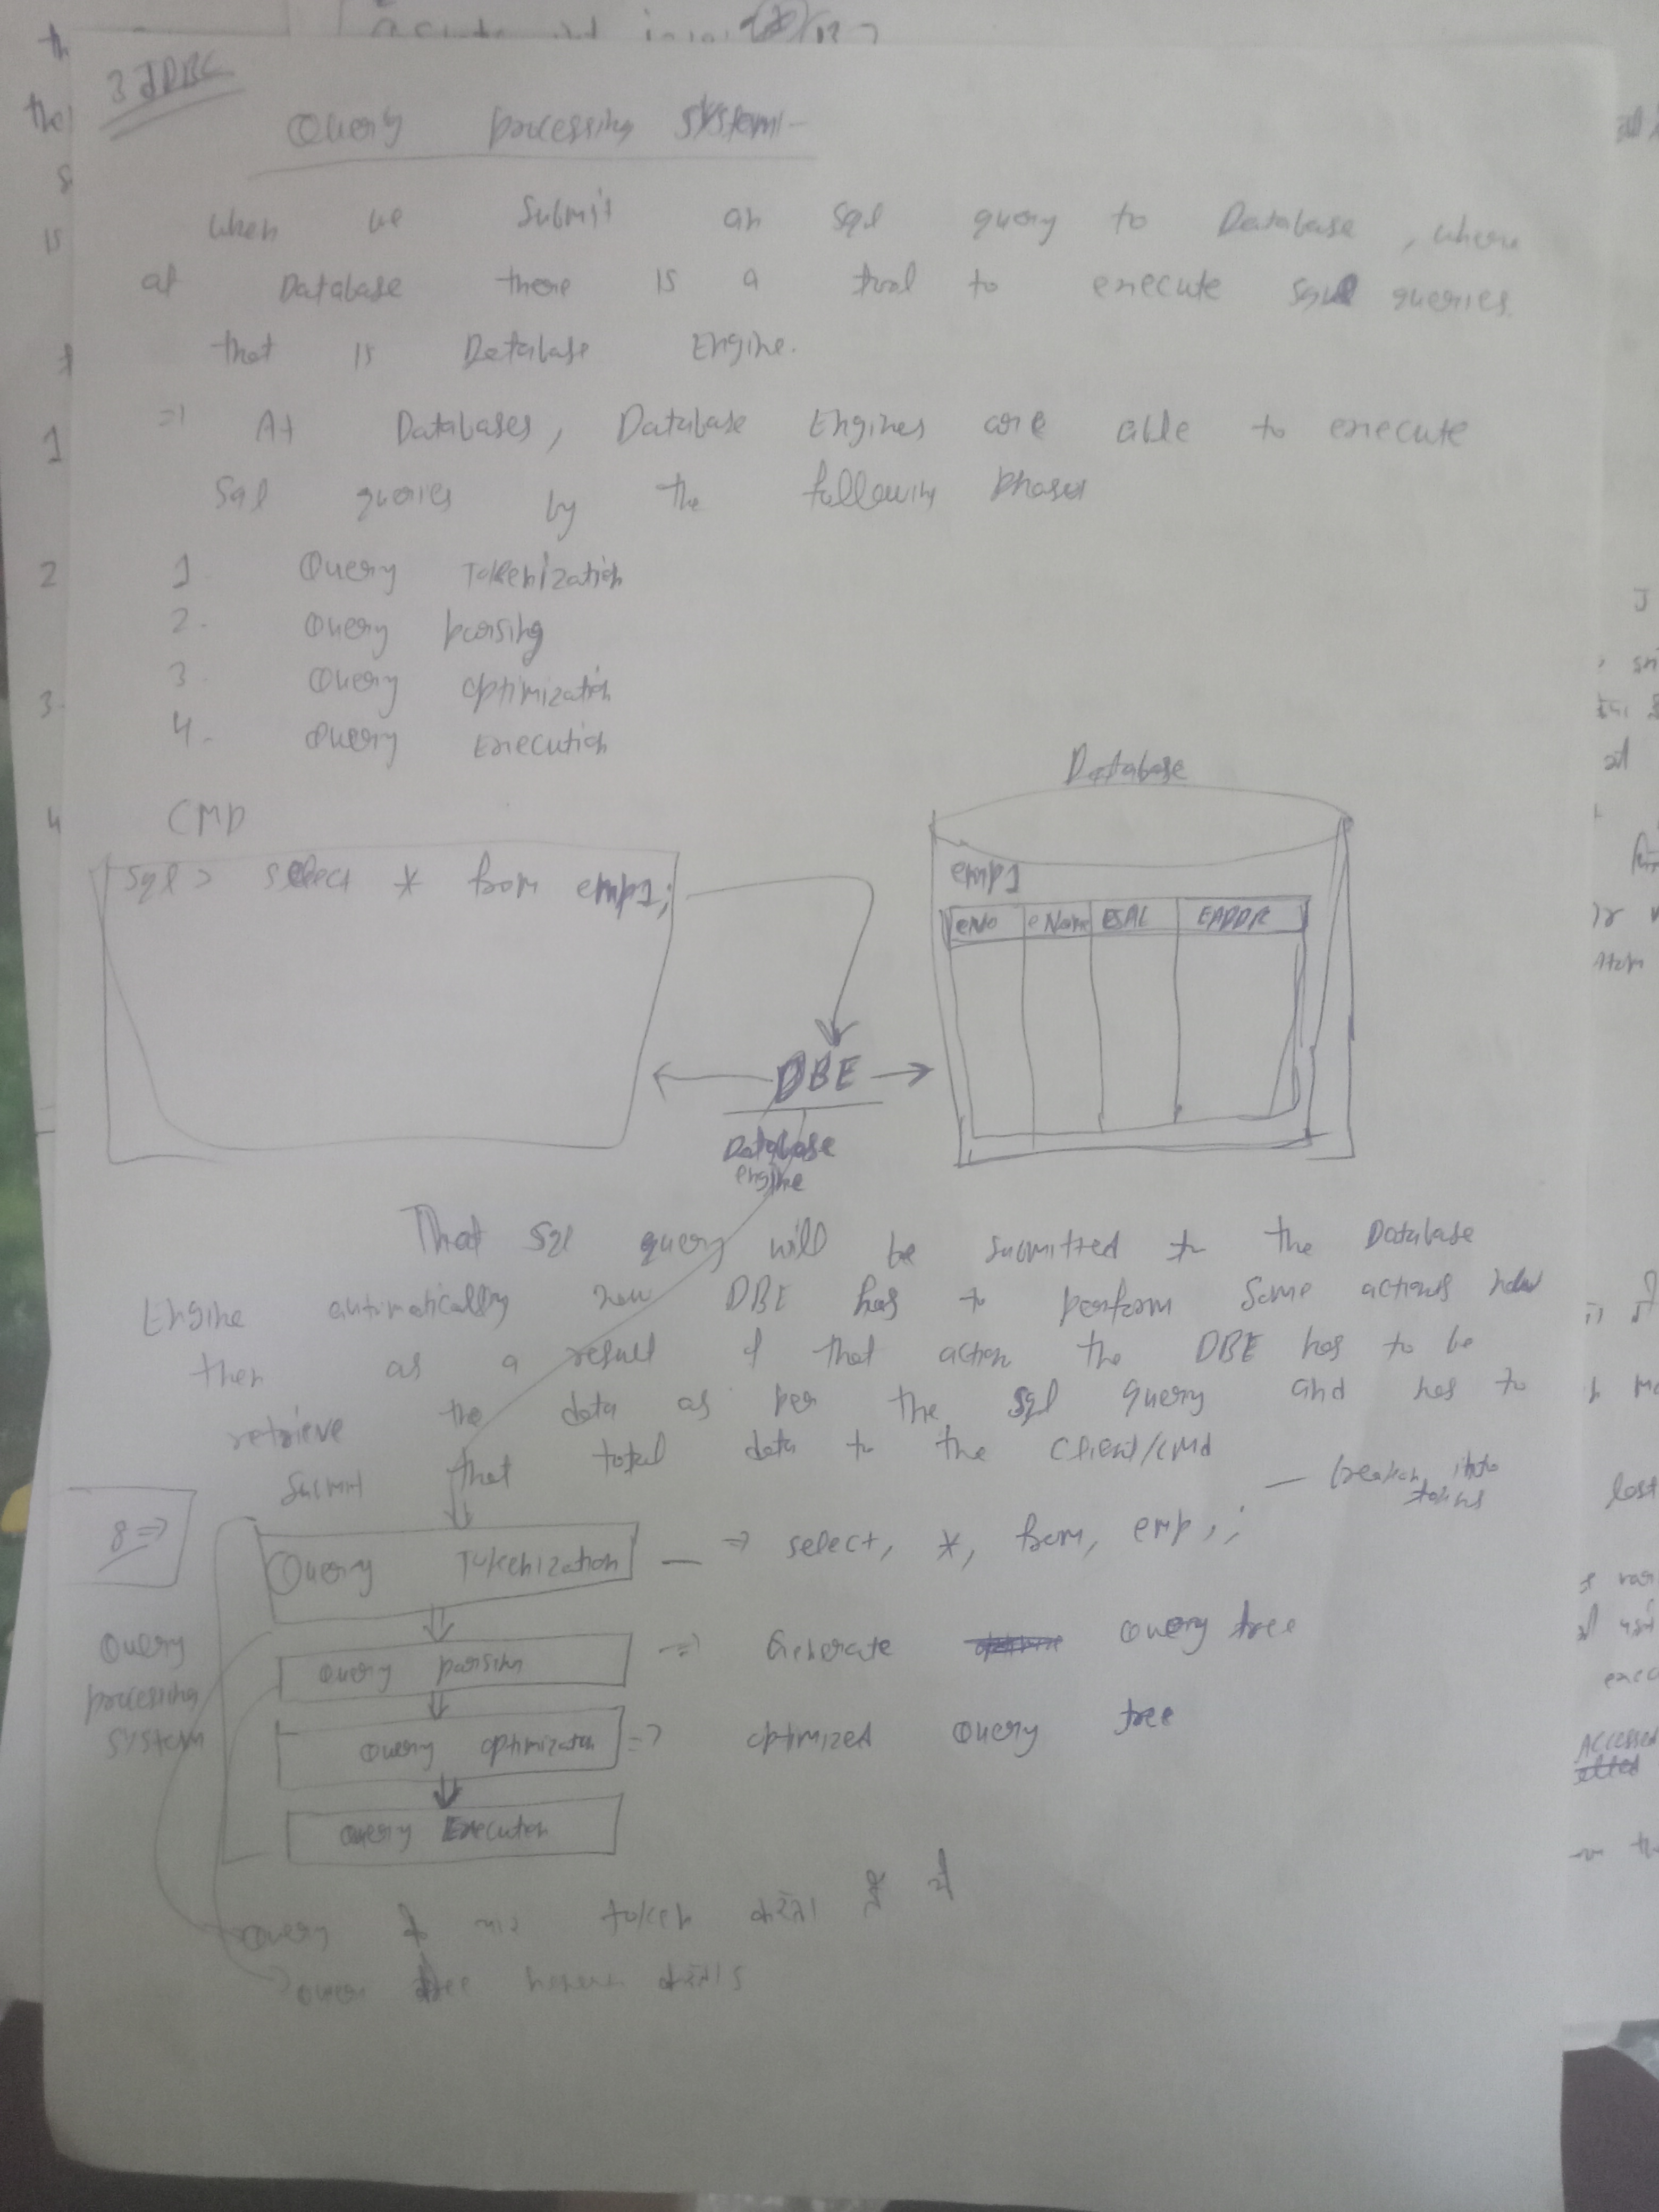 3 JDBC
Query processing system:-
when we submit an sql query to Database, where
at Database there is a tool to execute sql queries
that is Database Engine.
=> At Databases, Database Engines are able to execute
sql queries by the following phases
1. Query Tokenization
2. Query parsing
3. Query optimization
4. Query Execution
CMD
Database
sql > select * from emp1;
emp1
eNo eName ESAL EADDR
DBE
Database
engine
That sql query will be submitted to the Database
Engine automatically now DBE has to perform some actions now
then as a result of that action the DBE has to be
retrieve the data as per the sql query and has to
submit that total data to the client/cmd
8=>
Query Tokenization => select, *, from, emp, ; — break into tokens
Query processing system
Query parsing => Generate Query tree
Query optimization => optimized Query tree
Query Execution
Query token
tree